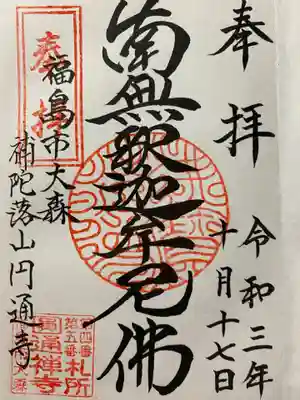 奉拝
令和三年
十月十七日
南無釈迦牟尼佛
奉拝
福島市大森
補陀落山円通寺
第五番
札所
圓通禅寺